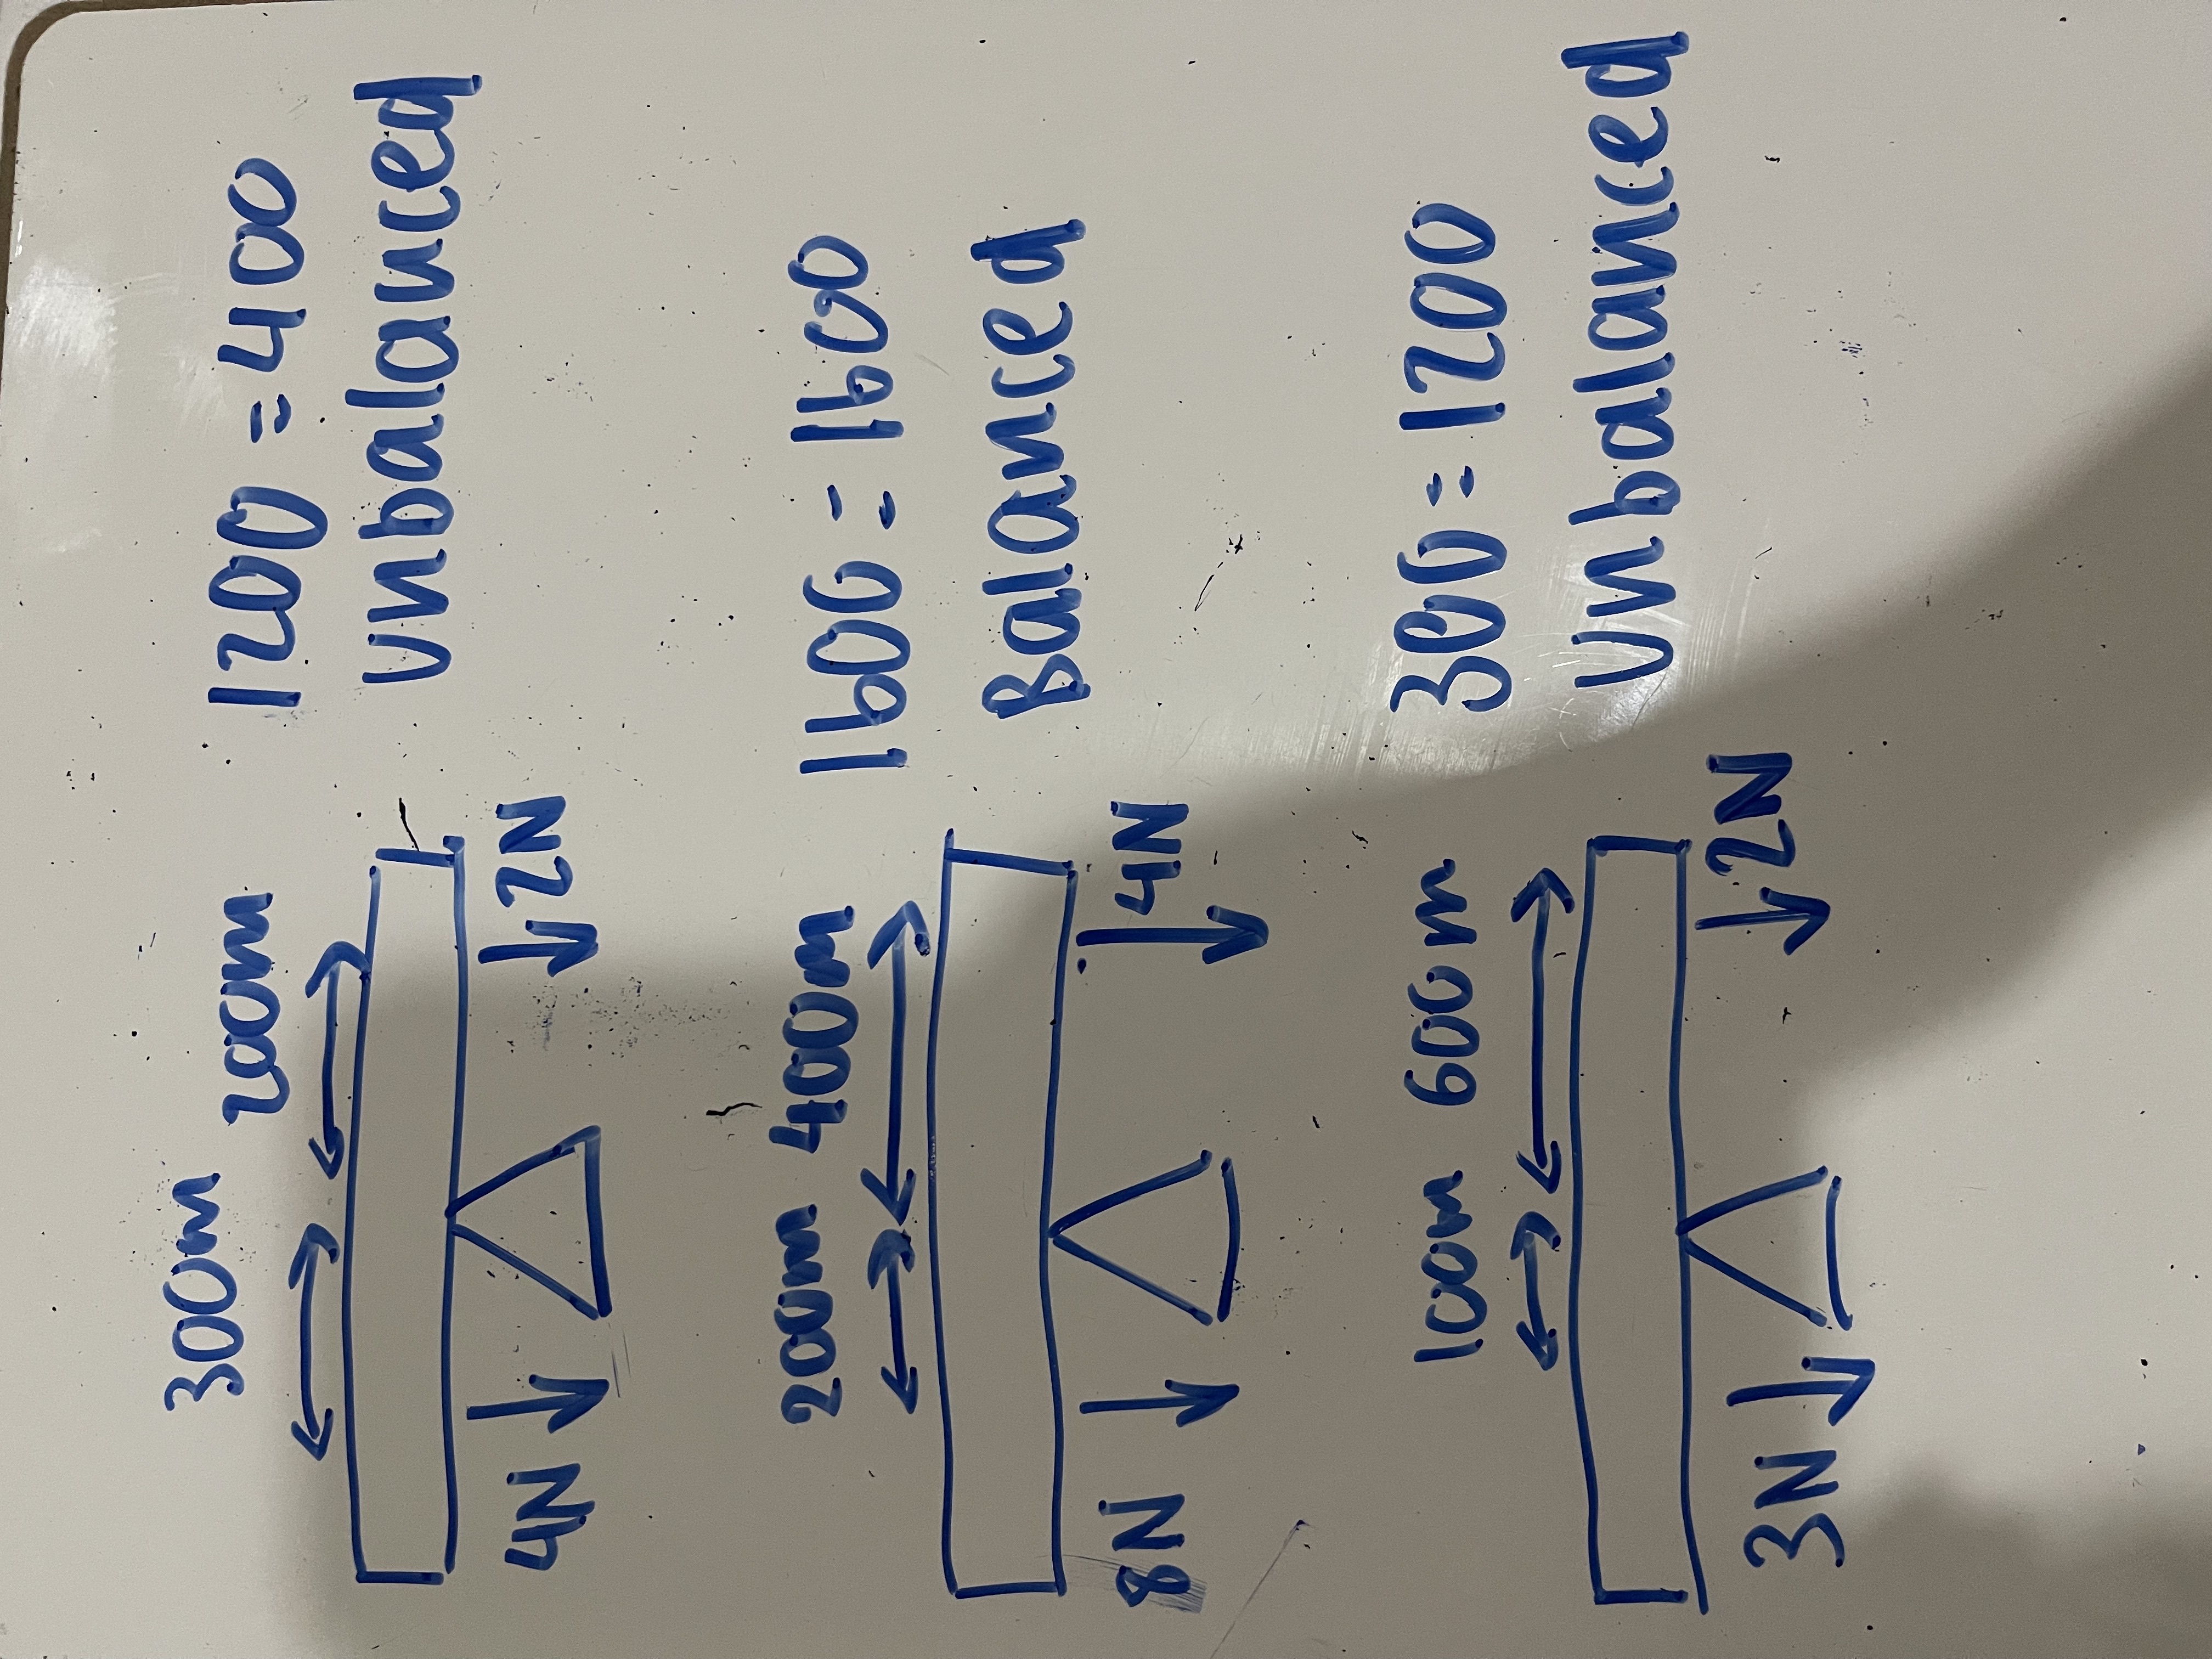 300m 200m
1200 = 400
4N 2N
unbalanced
200m 400m
1600 = 1600
8N 4N
Balanced
100m 600m
300 = 1200
3N 2N
unbalanced